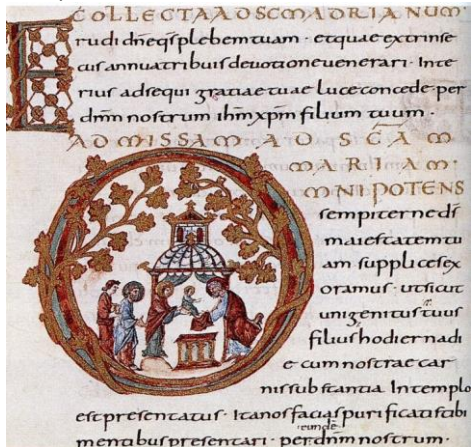 COLLECTA AD SC̄M ADRIANUM
Erudi dn̄e qs̄ plebem tuam · et quae extrinse
cus annua tribuis devotione venerari · Inte
rius adsequi gratiae tuae luce concede · per
dnm̄ nostrum ihm̄ xpm̄ filium tuum ·
AD MISSAM AD SC̄AM
MARIAM ·
OMNIPOTENS
sempiterne ds̄
maiestatem tu
am supplices ex
oramus · ut sicut
unigenitus tuus
filius hodierna di
e cum nostrae car
nis substantia In templo
est presentatus · Ita nos facias purificatis tibi
mentibus presentari · per eundē dnm̄ nostrum ·